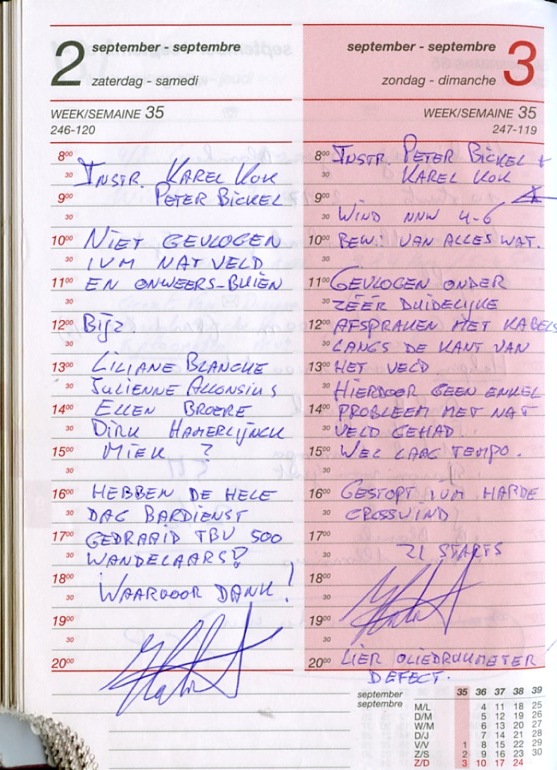 2
september - septembre
zaterdag - samedi
WEEK/SEMAINE 35
246-120
8⁰⁰
INSTR. KAREL KOK
30
PETER BICKEL
9⁰⁰
30
10⁰⁰ NIET GEVLOGEN
30 IVM NAT VELD
11⁰⁰ EN ONWEERS-BUIEN
30
12⁰⁰ Bijz
30
13⁰⁰ LILIANE BLANCKE
30 JULIENNE ALLONSIUS
14⁰⁰ ELLEN BROERE
30 DIRK HAMERLIJNCK
15⁰⁰ MIEK ?
30
16⁰⁰ HEBBEN DE HELE
30 DAG BARDIENST
17⁰⁰ GEDRAAID TBV 500
30 WANDELAARS!?
18⁰⁰ WAARVOOR DANK!
30
19⁰⁰
30
20⁰⁰
september - septembre
3
zondag - dimanche
WEEK/SEMAINE 35
247-119
8⁰⁰ INSTR. PETER BICKEL +
30 KAREL KOK
9⁰⁰
30 WIND NNW 4-6
10⁰⁰ BEW: VAN ALLES WAT.
30
11⁰⁰ GEVLOGEN ONDER
30 ZÉÉR DUIDELIJKE
12⁰⁰ AFSPRAKEN MET KABELS
30 LANGS DE KANT VAN
13⁰⁰ HET VELD
30 HIERDOOR GEEN ENKEL
14⁰⁰ PROBLEEM MET NAT
30 VELD GEHAD.
15⁰⁰ WEL LAAG TEMPO.
30
16⁰⁰ GESTOPT IVM HARDE
30 CROSSWIND
17⁰⁰
30 21 STARTS
18⁰⁰
30
19⁰⁰
30
20⁰⁰ LIER OLIEDRUKMETER
DEFECT.
september
septembre
35 36 37 38 39
M/L 4 11 18 25
D/M 5 12 19 26
W/M 6 13 20 27
D/J 7 14 21 28
V/V 1 8 15 22 29
Z/S 2 9 16 23 30
Z/D 3 10 17 24